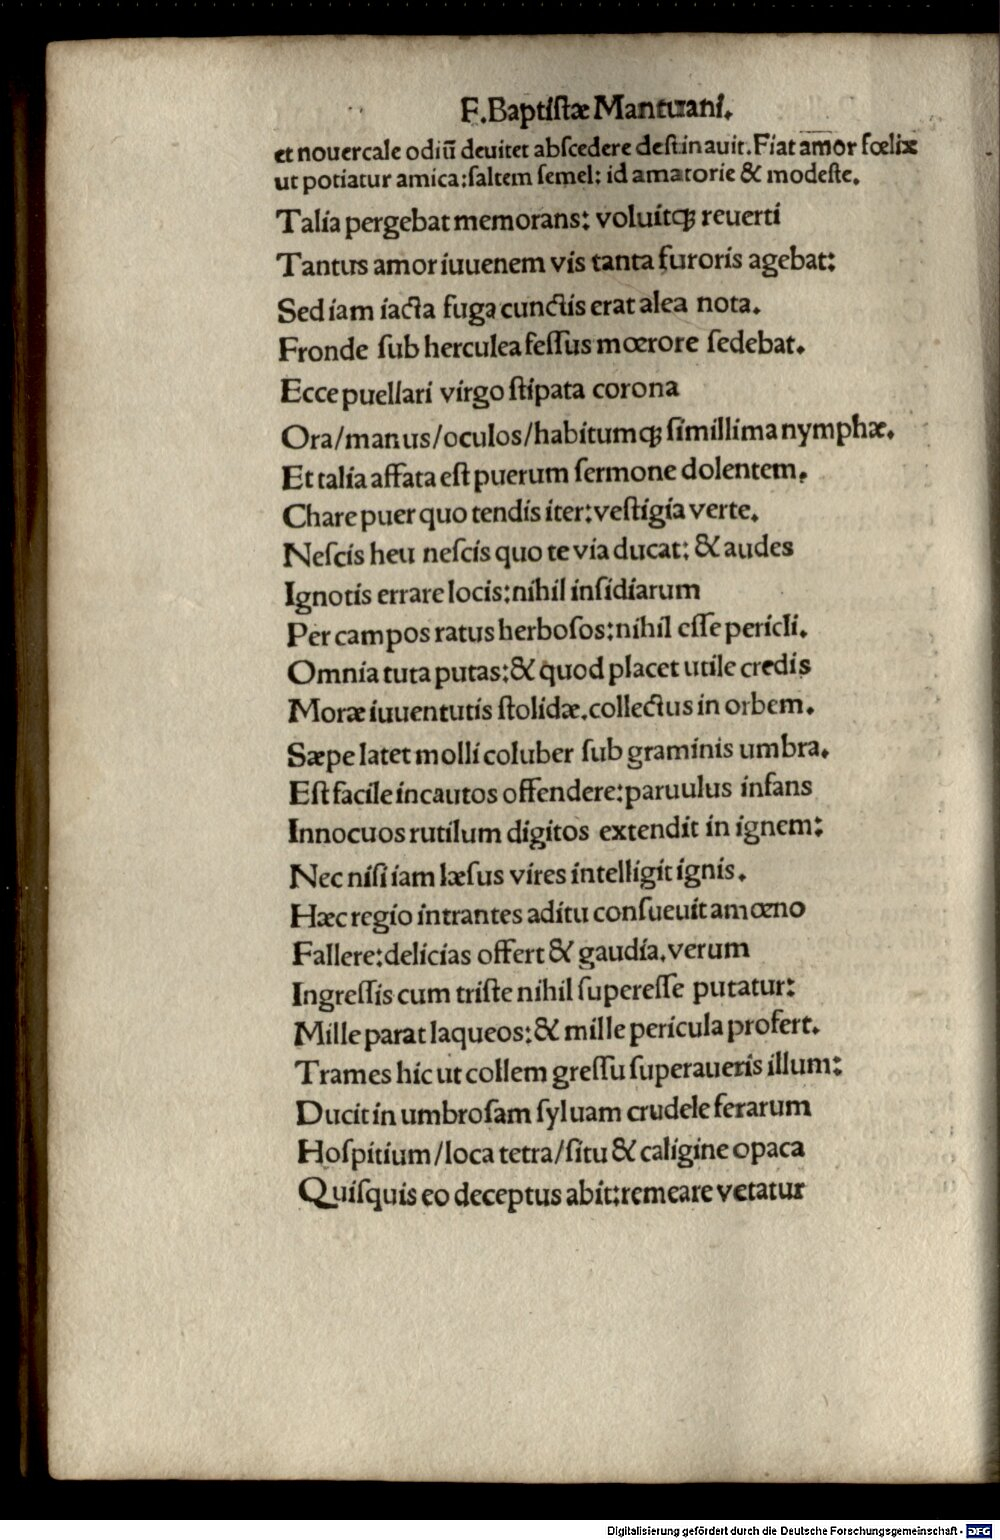 F.Baptiſtæ Mantuani.
et nouercale odiū deuitet abſcedere deſtinauit.Fiat amor fœlix
ut potiatur amica:ſaltem ſemel: id amatorie & modeſte.
Talia pergebat memorans: voluitqꝫ reuerti
Tantus amor iuuenem vis tanta furoris agebat:
Sed iam iacta fuga cunctis erat alea nota.
Fronde ſub herculea feſſus mœrore ſedebat.
Ecce puellari virgo ſtipata corona
Ora/manus/oculos/habitumqꝫ ſimillima nymphæ.
Et talia affata eſt puerum ſermone dolentem.
Chare puer quo tendis iter:veſtigia verte.
Neſcis heu neſcis quo te via ducat: & audes
Ignotis errare locis:nihil inſidiarum
Per campos ratus herboſos:nihil eſſe pericli.
Omnia tuta putas:& quod placet utile credis
Moræ iuuentutis ſtolidæ.collectus in orbem.
Sæpe latet molli coluber ſub graminis umbra.
Eſt facile incautos offendere:paruulus infans
Innocuos rutilum digitos extendit in ignem:
Nec niſi iam læſus vires intelligit ignis.
Hæc regio intrantes aditu conſueuit amœno
Fallere:delicias offert & gaudia.verum
Ingreſſis cum triſte nihil ſupereſſe putatur:
Mille parat laqueos:& mille pericula profert.
Trames hic ut collem greſſu ſuperaueris illum:
Ducit in umbroſam ſyluam crudele ferarum
Hoſpitium/loca tetra/ſitu & caligine opaca
Quiſquis eo deceptus abit:remeare vetatur
Digitalisierung gefördert durch die Deutsche Forschungsgemeinschaft - DFG